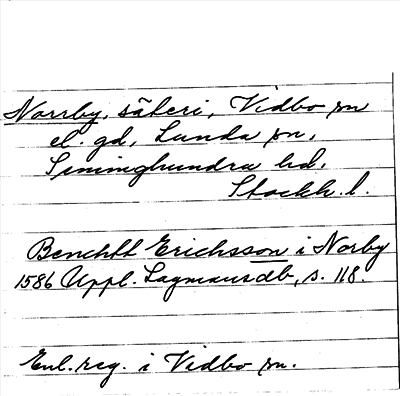 Norrby, säteri, Vidbo sn
el. gd, Lunda sn,
Seminghundra hd.
Stockh. l.
Benchtt Erichsson i Norby
1586 Uppl. Lagmansdb, s. 118.
Enl. reg. i Vidbo sn.